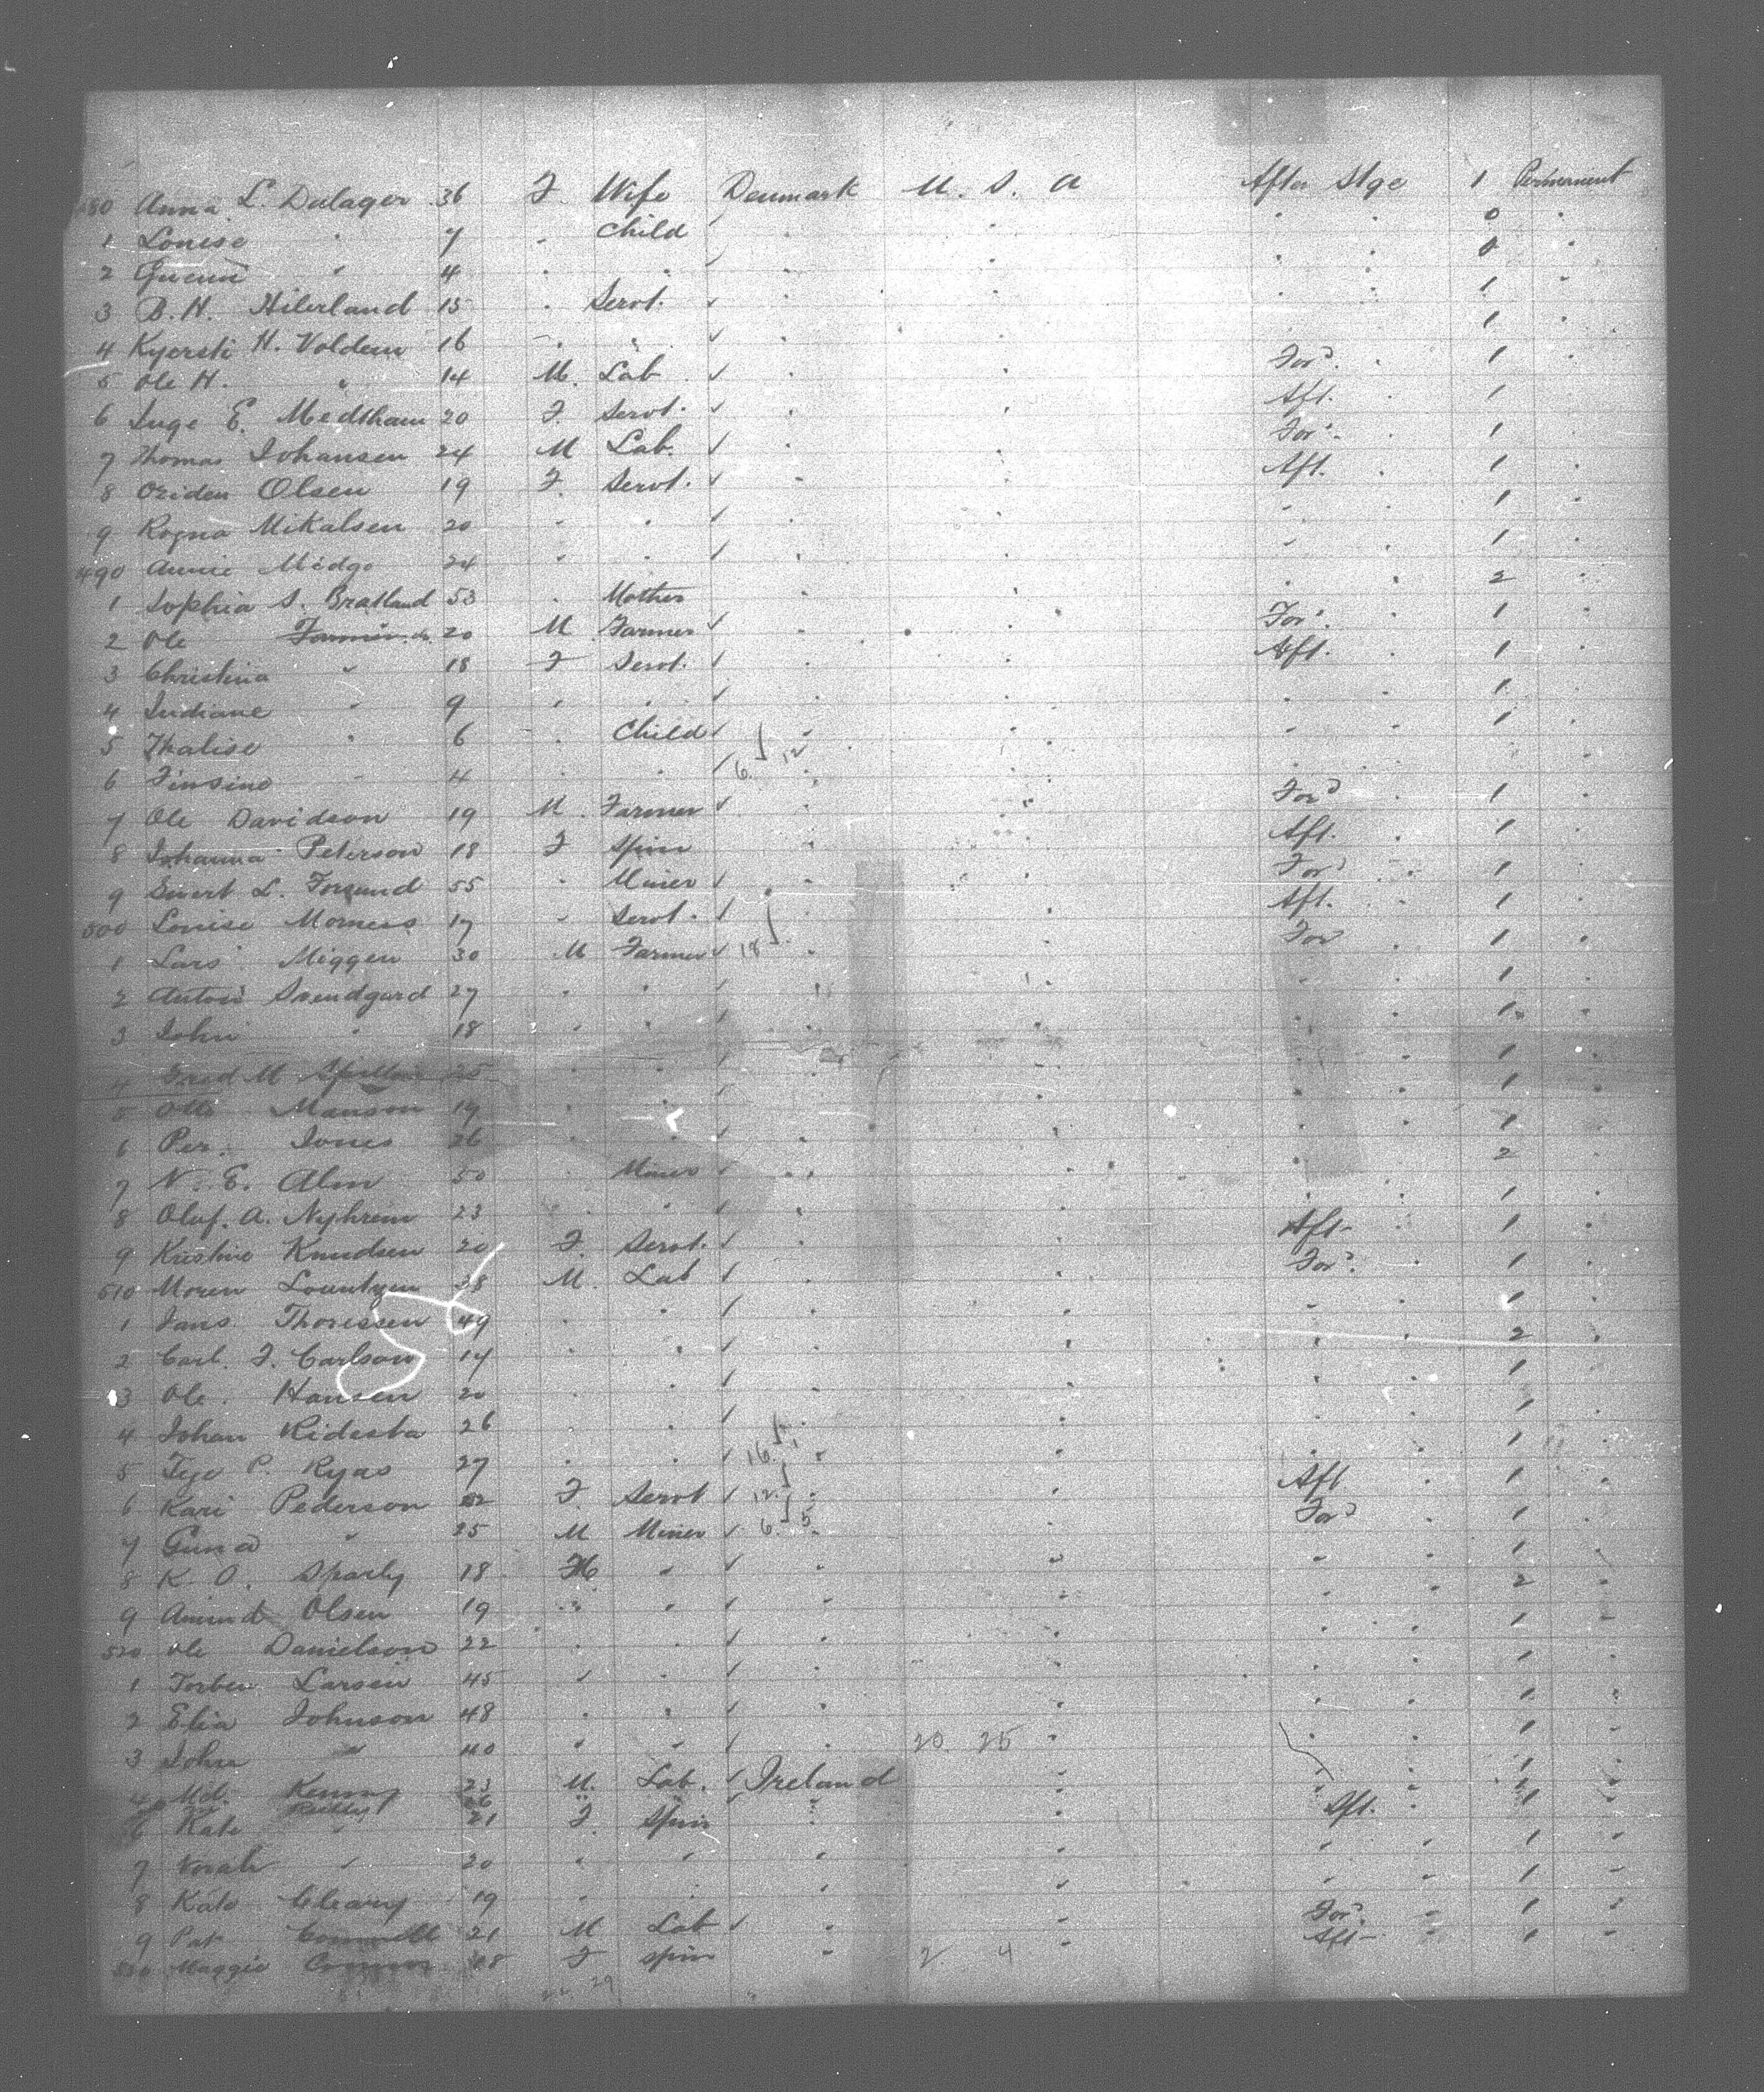 480 Anna L. Dalager 36 F. Wife Denmark U. S. A After Stge 1 Permernent
1 Louise " 7 " Child " " " " 0 "
2 " 4 " " " " " " 0 "
3 B. H. Hilerland 15 " Servt. " " " " 1 "
4 Kyersti H. Voldem 16 " " " " " " 1 "
5 Ole H. " 14 M. Lab " " For'd " 1 "
6 Inge E. Medtham 20 F. Servt. " " Aft. " 1
7 Thomas Johansen 24 M Lab. " " For'd " 1
8 Oriden Olsen 19 F. Servt. " " Aft. " 1
9 Ragna Mikalsen 20 " " " " " 1 "
490 Annie Midgo 24 " " " " " " 1 "
1 Sophia S. Bratland 53 " Mother " " " " 2 "
2 Ole 20 M Farmer " " For'd " 1 "
3 Christina " 18 F Servt. " " Aft. " 1 "
4 Indiane " 9 " " " " " " 1 "
5 Thalise " 6 " Child " " " " 1 "
6 Finsine " 4 " " 6 12 " " " "
7 Ole Davidson 19 M. Farmer " " For'd " 1 "
8 Johanna Peterson 18 F Spin " " Aft. " 1
9 Sivert L. Forsund 55 " Miner " " For'd " 1
500 Louise Morness 17 " Servt. " Aft. " 1
1 Lars Miggen 30 M Farmer 18 " " For " 1 "
2 Anton Svendgard 27 " " " " " " 1 "
3 John " 18 " " " " " 1 "
4 Fred M 25 " " " " " 1 "
5 Otto Manson 19 " " " " " " 1 "
6 Per. Jones 26 " " " " " 1 "
7 N. E. Alm 50 " Miner " " " " 2 "
8 Oluf. A. Nyhrem 23 " " " " " " 1 "
9 Kristine Knudsen 20 F. Servt. " " Aft " 1 "
510 Moren Lountzen 28 M. Lab " " For'd " 1 "
1 Jans Thoressen 49 " " " " " 1 "
2 Carl. F. Carlson 14 " " " " " 2 "
3 Ole. Hansen 20 " " " " " 1 "
4 Johan Kidesta 26 " " " " " 1 "
5 P. Ryas 27 " " 16 " " " 1 "
6 Kari Pederson 22 F. Servt 12 " " Aft. " 1 "
7 " 25 M Miner 6 5 " " For'd " 1 "
8 K. O. Sparby 18 " " " " " 1 "
9 Amund Olsen 19 " " " " " " 2 "
520 Ole Danielson 22 " " " " " " 1 "
1 Torben Larsen 45 " " " " " " 1 "
2 Elia Johnson 48 " " " " " " 1 "
3 John " 40 " " " 20 25 " " " 1 "
4 Md. Kenny 23 M. Lab. Ireland " " " 1 "
Reilly 26 " " " " " " 1 "
6 Kate " 21 F. Spin " " Aft. " 1 "
7 Norah " 20 " " " " " " 1 "
8 Kate Cleary 19 " " " " " " 1 "
9 Pat 21 M Lab " " For'd " 1 "
530 Maggie 18 F Spin " 2 4 " Aft " 1 "
29